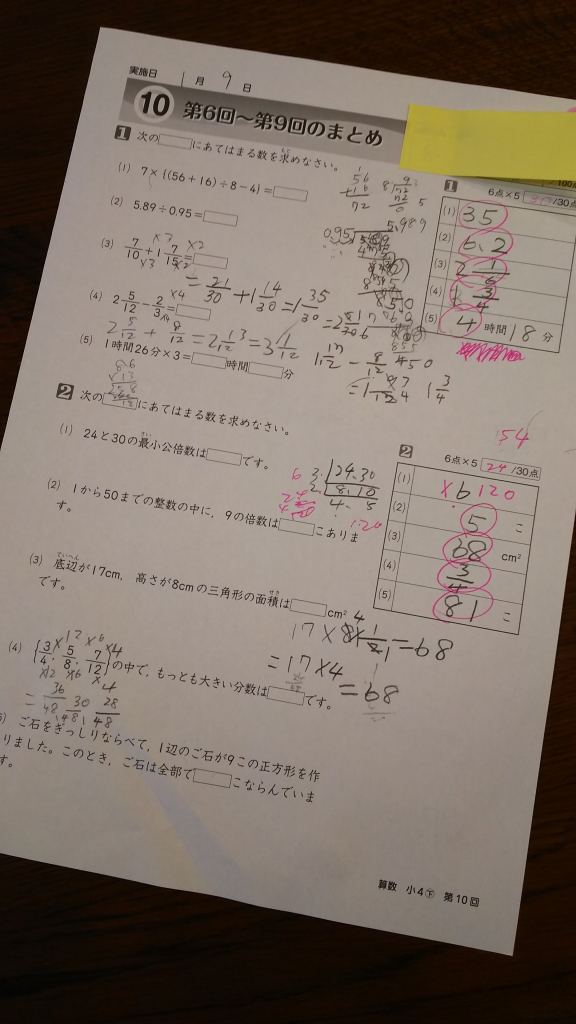 実施日 1月 9日
10 第6回～第9回のまとめ
1 次の□にあてはまる数を求めなさい。
(1) 7×{(56+16)÷8-4}=□
(2) 5.89÷0.95=□
(3) 7/10+1 7/15=□
×3 ×2
×3 ×2
= 21/30 + 1 14/30 = 1 35/30
(4) 2 5/12 - 2/3=□
×4
×4
2 5/12 + 8/12 = 2 13/12 = 3 1/12
1 17/12 - 8/12
1 3/4
(5) 1時間26分×3=□時間□分
56
+16
72
0.95
1
6点×5 /30点
(1) 35
(2) 6.2
(3) 2 1/6
(4) 1 3/4
(5) 4 時間 18 分
54
2 次の□にあてはまる数を求めなさい。
(1) 24と30の最小公倍数は□です。
24 30
8 10
4 5
120
(2) 1から50までの整数の中に，9の倍数は□こありま
す。
(3) 底辺が17cm，高さが8cmの三角形の面積は□cm²
です。
17×8×1/2=68
=17×4
=68
(4) {3/4, 5/8, 7/12}の中で，もっとも大きい分数は□です。
×12 ×6 ×4
×12 ×6 ×4
= 36/48 30/48 28/48
ご石をぎっしりならべて，1辺のご石が9この正方形を作
りました。このとき，ご石は全部で□こならんでいま
す。
2
6点×5 24/30点
(1) ×6 120
(2) 5 こ
(3) 68 cm²
(4) 3/4
(5) 81 こ
算数 小4下 第10回